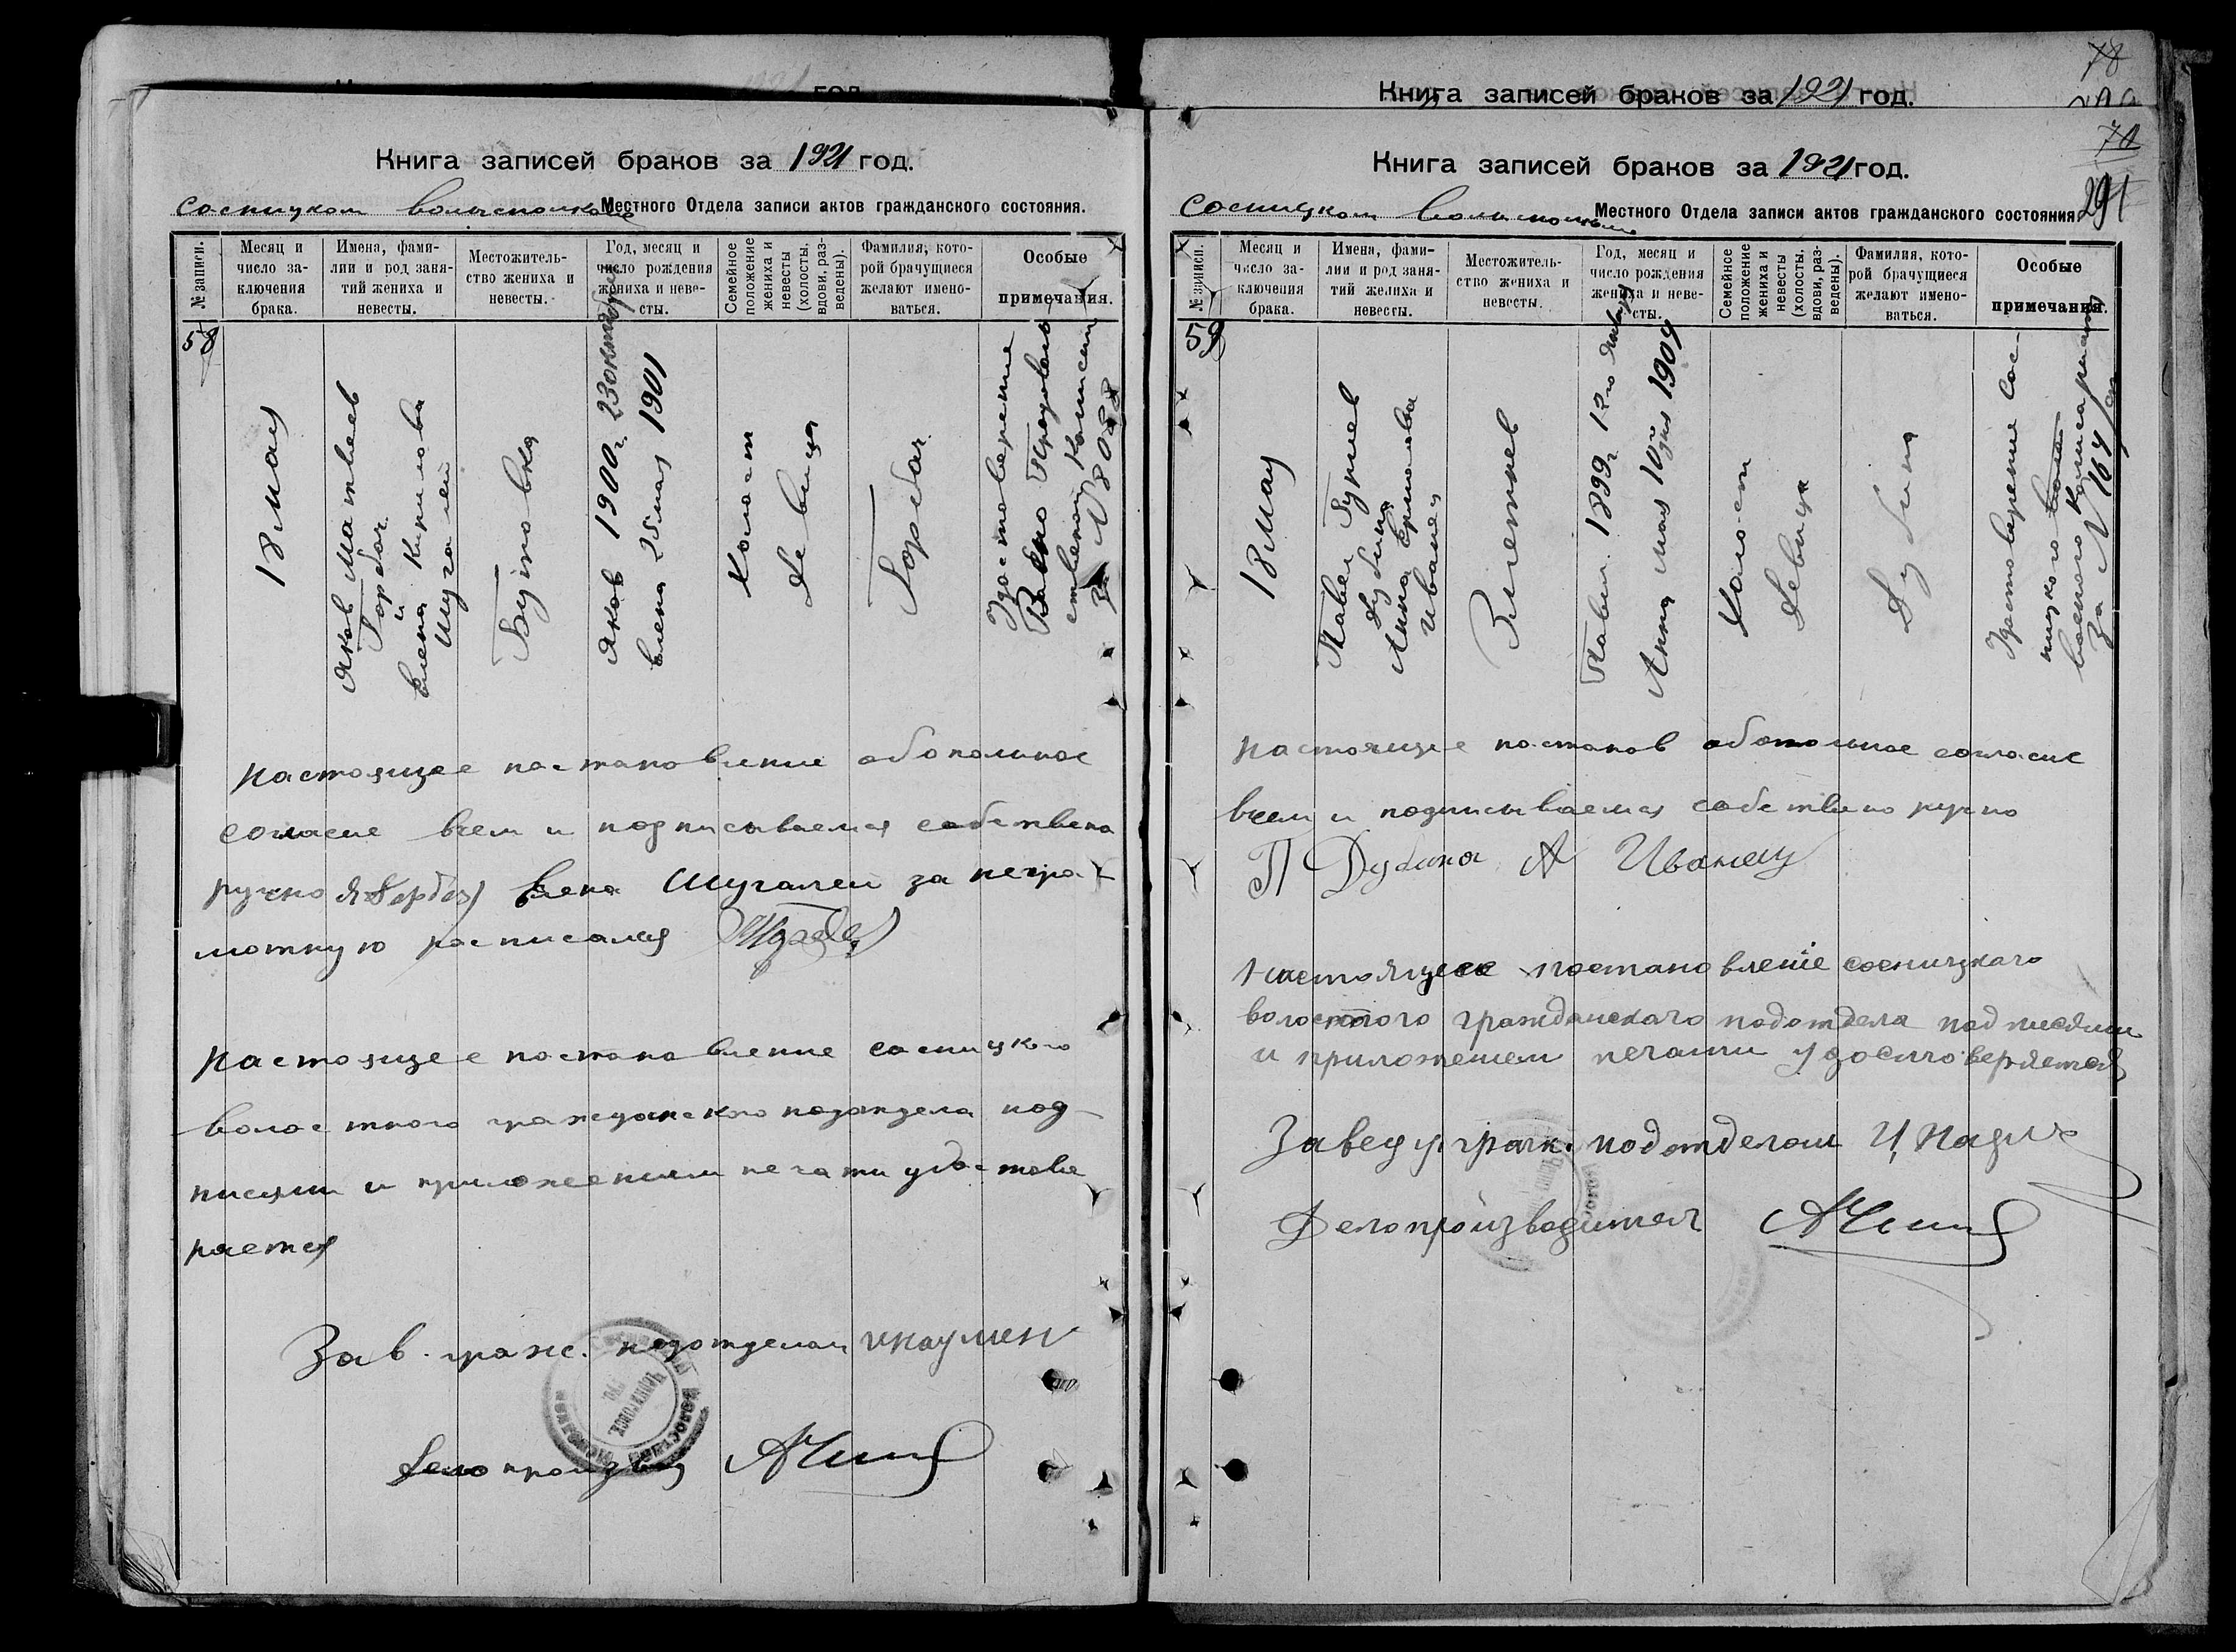 Книга записей браков за 1921 год.
Сосницком волисполкоме Местного Отдела записи актов гражданского состояния.
№ записи.
Месяц и число за-ключения брака.
Имена, фами-лии и род заня-тий жениха и невесты.
Местожитель-ство жениха и невесты.
Год, месяц и число рождения жениха и неве-сты.
Семейное положение жениха и невесты (холосты, вдовы, раз-ведены).
Фамилия, кото-рой брачущиеся желают имено-ваться.
Особые примечания.
58
18 мая
Яков Матвеев
Горбач
и
Елена Кирилова
Шугалей
Бутовка
Яков 1900 г. 23 октября
Елена 25 мая 1901
Холост
Девица
Горбач
Удостоверение
Продоволь
ственной Комисии
За № 8088
Настоящее постановление обополное
согласие всем и подписываемся собствено
ручно Я Горбач Елена Шугалей за негра
мотную росписался
Настоящее постановление сосницкого
волостного гражданского подотдела под-
писями и приложением печати удостове
ряется
Зав. граж. подотделом И Наумен
Делопроизвод
Книга записей браков за 1921 год.
78
Книга записей браков за 1921 год.
78
291
Сосницком волисполкоме Местного Отдела записи актов гражданского состояния
№ записи.
Месяц и число за-ключения брака.
Имена, фами-лии и род заня-тий жениха и невесты.
Местожитель-ство жениха и невесты.
Год, месяц и число рождения жениха и неве-сты.
Семейное положение жениха и невесты (холосты, вдовы, раз-ведены).
Фамилия, кото-рой брачущиеся желают имено-ваться.
Особые примечания.
59
18 мая
Павел
Дубина
Анна Ермолаева
Иванец
Зметнев
Павел 1899 г 12го января
Анна мая 10го дня 1904
Холост
Девица
Дубина
Удостоверение Сос-
ницкого
военного Комисариата
За № 164
Настоящее постанов обополное согласие
всем и подписываемся собствено ручно
П Дубина А Иванец
Настоящее постановление сосницкаго
волостного гражданскаго подотдела подписями
и приложением печати удостоверяется
Заведу. граж. подотделом И Наум
Делопроизводител